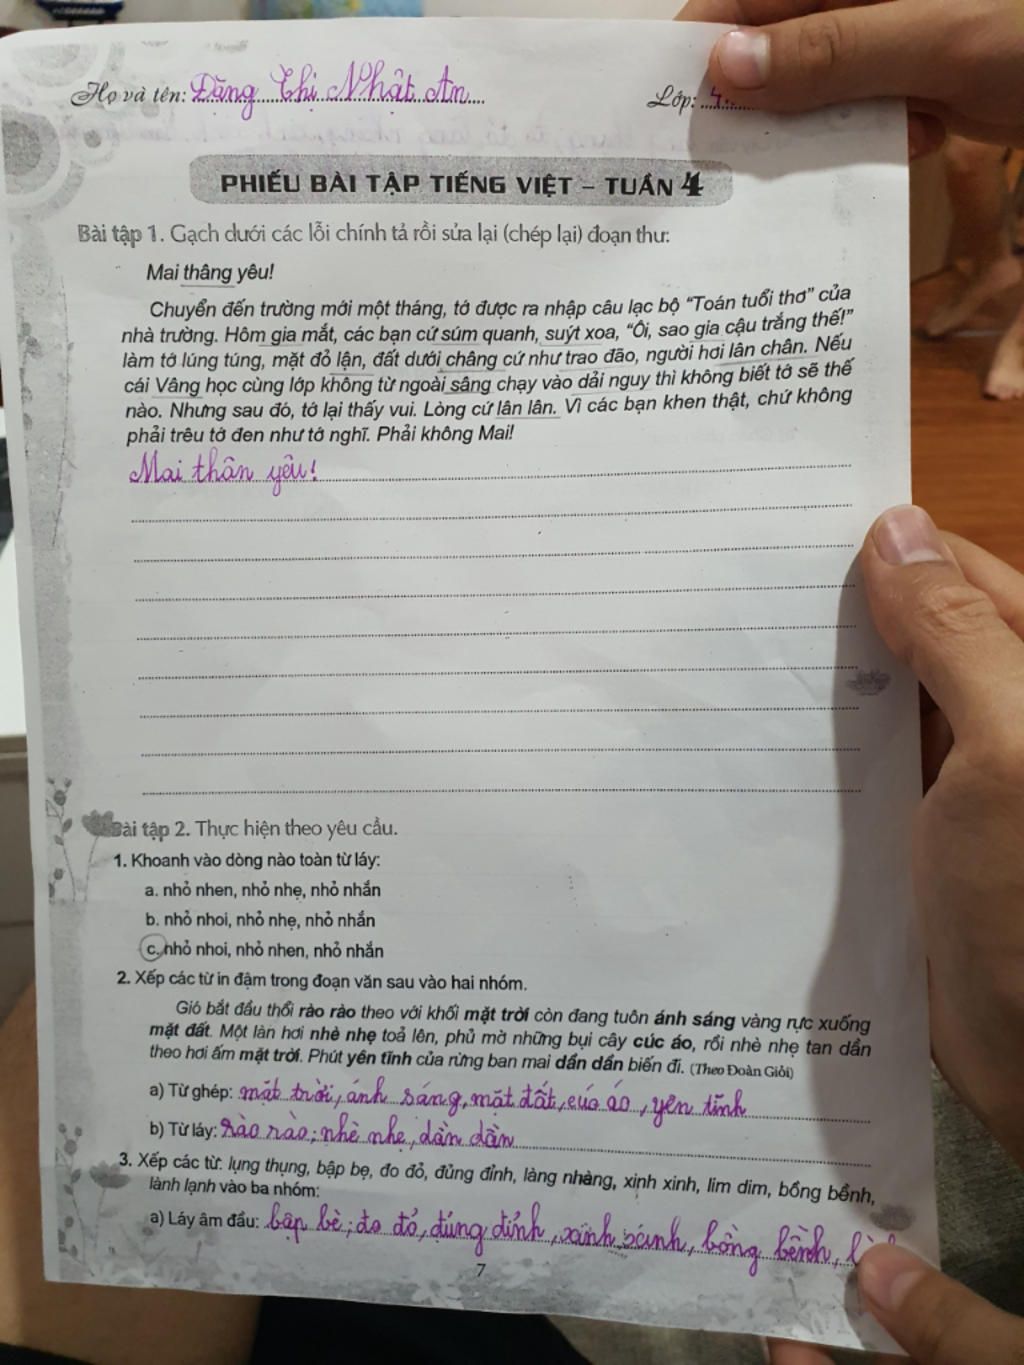 Họ và tên: Đặng Thị Nhật An Lớp: 4
PHIẾU BÀI TẬP TIẾNG VIỆT – TUẦN 4
Bài tập 1. Gạch dưới các lỗi chính tả rồi sửa lại (chép lại) đoạn thư:
Mai thâng yêu!
Chuyển đến trường mới một tháng, tớ được ra nhập câu lạc bộ “Toán tuổi thơ” của
nhà trường. Hôm gia mắt, các bạn cứ súm quanh, suýt xoa, “Ôi, sao gia cậu trắng thế!”
làm tớ lúng túng, mặt đỏ lận, đất dưới châng cứ như trao đão, người hơi lân chân. Nếu
cái Vâng học cùng lớp không từ ngoài sâng chạy vào dải nguy thì không biết tớ sẽ thế
nào. Nhưng sau đó, tớ lại thấy vui. Lòng cứ lân lân. Vì các bạn khen thật, chứ không
phải trêu tớ đen như tớ nghĩ. Phải không Mai!
Mai thân yêu!
Bài tập 2. Thực hiện theo yêu cầu.
1. Khoanh vào dòng nào toàn từ láy:
a. nhỏ nhen, nhỏ nhẹ, nhỏ nhắn
b. nhỏ nhoi, nhỏ nhẹ, nhỏ nhắn
c. nhỏ nhoi, nhỏ nhen, nhỏ nhắn
2. Xếp các từ in đậm trong đoạn văn sau vào hai nhóm.
Gió bắt đầu thổi rào rào theo với khối mặt trời còn đang tuôn ánh sáng vàng rực xuống
mặt đất. Một làn hơi nhè nhẹ toả lên, phủ mờ những bụi cây cúc áo, rồi nhè nhẹ tan dần
theo hơi ấm mặt trời. Phút yên tĩnh của rừng ban mai dần dần biến đi. (Theo Đoàn Giỏi)
a) Từ ghép: mặt trời, ánh sáng, mặt đất, cúc áo, yên tĩnh
b) Từ láy: rào rào; nhè nhẹ, dần dần
3. Xếp các từ: lụng thụng, bập bẹ, đo đỏ, đủng đỉnh, làng nhàng, xinh xinh, lim dim, bồng bềnh,
lành lạnh vào ba nhóm:
a) Láy âm đầu: bập bẹ; đo đỏ, đủng đỉnh, xinh xinh, bồng bềnh,
7